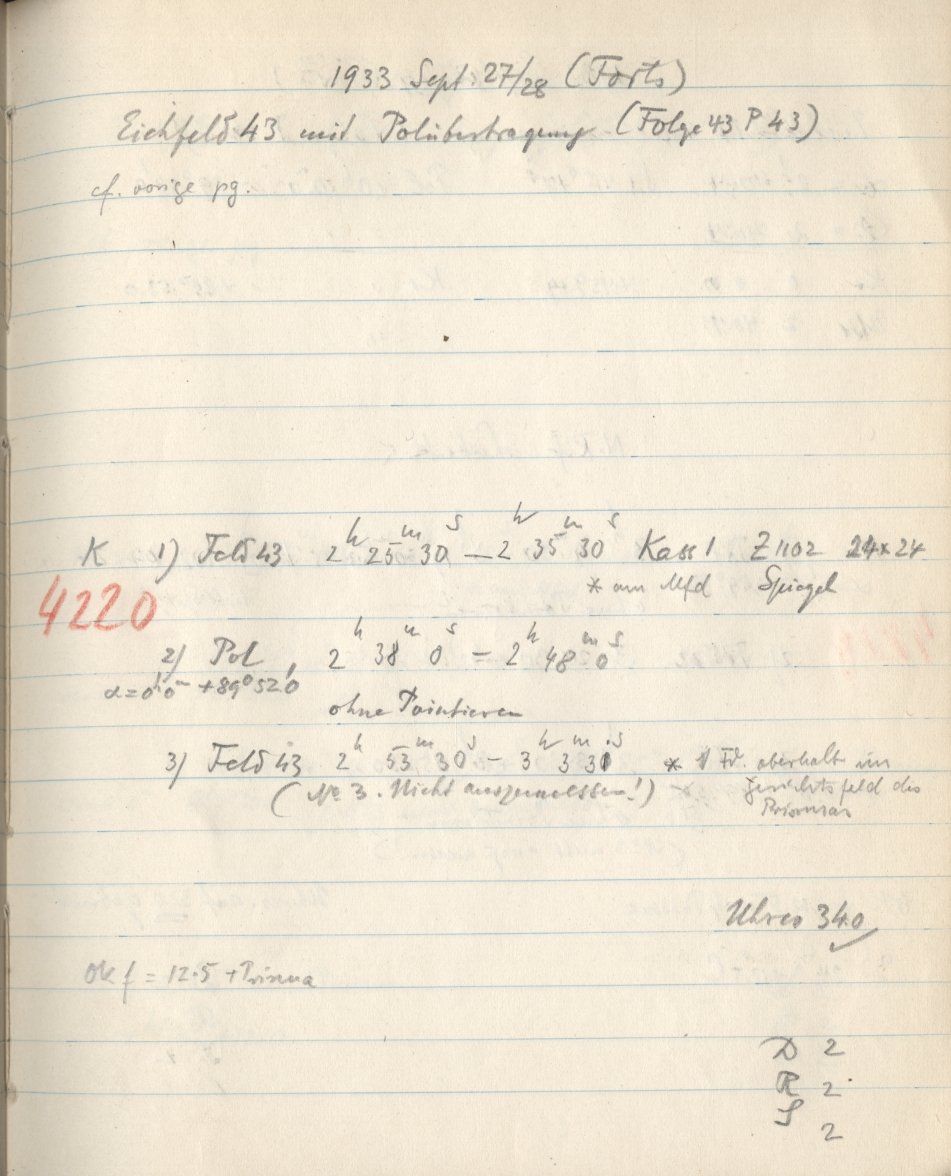 1933 Sept. 27/28 (Forts)
Eichfeld 43 mit Polübertragung (Folge 43 P 43)
cf. vorige pg.
K 1) Feld 43 2h 25m 30s — 2h 35m 30s Kass 1 Z 1102 24×24
* am Mfd Spiegel
4220
2) Pol, 2h 38m 0s — 2h 48m 0s
α=0h0m +89°52'0
ohne Pointieren
3) Feld 43 2h 53m 30s — 3h 3m 31s * 1 Fd. oberhalb im
(No 3. Nicht auszumessen!) Gesichtsfeld des
Prismas
Uhren 34.0
Ok f = 12.5 + Prisma
D 2
R 2
S 2